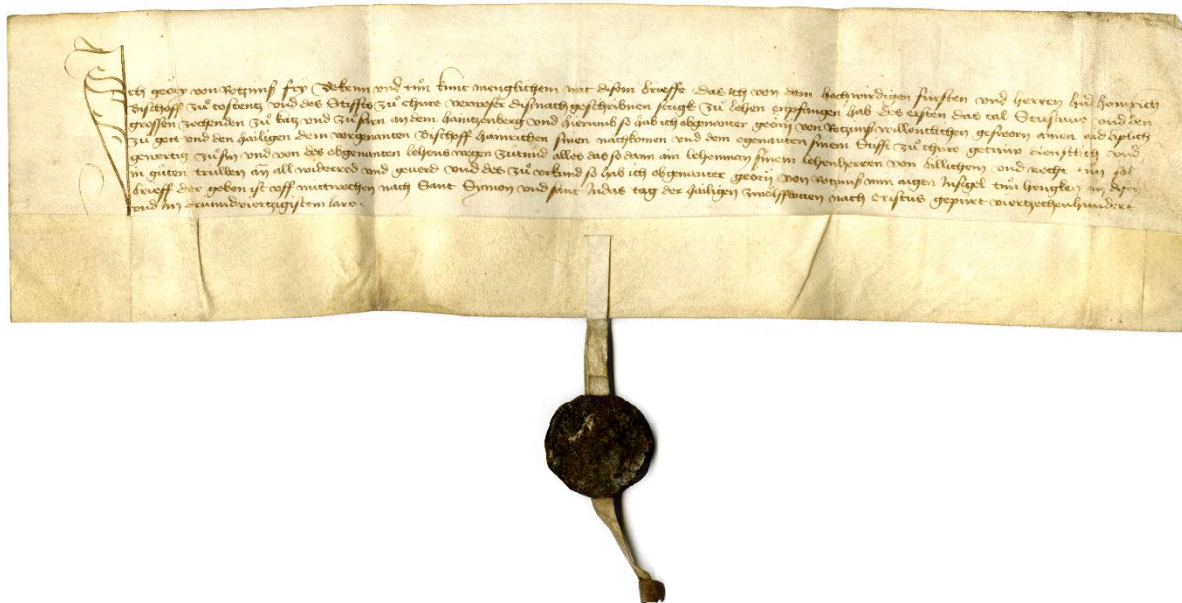 Ich georg von Rotzuns fry Bekenn und tůn kunt menglichem mit disem brieffe das ich von dem hochwirdigen fürsten und herren hern heinrich
Bischoff zů costentz und des Stiffts zů chure verweser dis nach geschribnen stugk zů lehen enpfangen hab des ersten das tal Stusauie und den
grossen zechenden zů katz und zů sarn an dem hantzenberg und hierumb so hab ich obgenanter georg von Rotzuns willentlichen gesworn ainen aid liplich
zů gott und den hailigen dem vorgenanten Bischoff hainrichen sinen nachkomen und dem egenanten sinem Stifft zů chure getruw dienstlich und
gewertig zů sin und von des obgenanten lehens wegen zů tund alles das so dann ain lehenman sinem lehenherren von billichem und recht tun sol
in gůten truwen an all widerred und geverd und des zů urkund so hab ich obgenanter georg von Rotzuns min aigen Insigel tun hengken an disen
brieff der geben ist uff mittwochen nach Sant Symon und sant Judas tag der hailigen zwölffbotten nach cristus gepurt viertzechenhundert
und im drüundviertzigistem iare